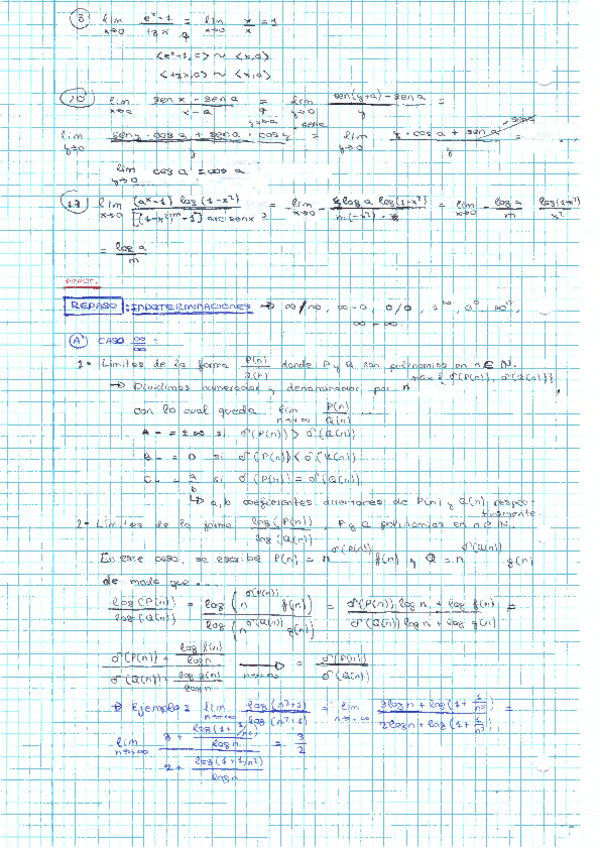 8 lim x→0 (e^x-1)/(tg x) = lim x→0 x/x = 1
<e^x-1, 0> ~ <x,0>
<tg x,0> ~ <x,0>
10 lim x→a (sen x - sen a)/(x-a) = y=x-a lim y→0 (sen(y+a) - sen a)/y =
lim y→0 (sen y · cos a + sen a · cos y - sen a)/y = lim y→0 (y · cos a + sen a - sen a)/y =
lim y→0 cos a = cos a
lim x→0 ((a^x-1) log(1-x^2))/([(1-x^2)^m -1] arc sen x) = -lim x→0 (x log a log(1-x^2))/(m(-x^2) · x) = lim x→0 - (log a)/m (log(1-x^2))/x^2
= (log a)/m
REPASO: INDETERMINACIONES → ∞/∞, ∞·0, 0/0, 1^∞, 0^0, ∞^0,
∞-∞
A CASO ∞/∞:
1- Límites de la forma P(n)/Q(n) donde P y Q son polinomios en n∈N.
→ Dividimos numerador y denominador por n^máx{σ(P(n)), σ(Q(n))}
con lo cual queda lim n→∞ P(n)/Q(n) ...
A- = ±∞ si σ(P(n)) > σ(Q(n))
B- = 0 si σ(P(n)) < σ(Q(n))
C- = a/b si σ(P(n)) = σ(Q(n))
↳ a, b coeficientes directores de P(n) y Q(n) respectivamente.
2- Límites de la forma log(P(n))/log(Q(n)), P y Q polinomios en n∈N.
En este caso, se escribe P(n) = n^σ(P(n)) f(n) y Q = n^σ(Q(n)) g(n)
de modo que...
log(P(n))/log(Q(n)) = log(n^σ(P(n)) f(n))/log(n^σ(Q(n)) g(n)) = (σ(P(n)) log n + log f(n))/(σ(Q(n)) log n + log g(n)) =
(σ(P(n)) + log f(n)/log n)/(σ(Q(n)) + log g(n)/log n) → n→∞ = σ(P(n))/σ(Q(n))
→ Ejemplo: lim n→∞ log(n^3+1)/log(n^2+1) = lim n→∞ (3 log n + log(1+1/n^3))/(2 log n + log(1+1/n^2)) =
lim n→∞ (3 + log(1+1/n^3)/log n)/(2 + log(1+1/n^2)/log n) = 3/2